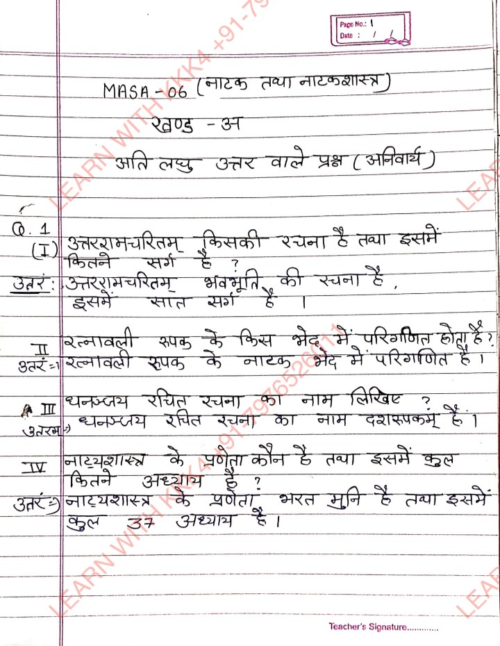 Page No.: 1
Date : / /
MASA-06 (नाटक तथा नाटकशास्त्र)
खण्ड - अ
अति लघु उत्तर वाले प्रश्न (अनिवार्य)
Q. 1
(I) उत्तररामचरितम् किसकी रचना है तथा इसमें
कितने सर्ग है ?
उतरं: उत्तररामचरितम् भवभूति की रचना है,
इसमें सात सर्ग है ।
II रत्नावली रुपक के किस भेद में परिगणित होता है?
उतरं:=) रत्नावली रुपक के नाटक भेद में परिगणित है ।
III धनञ्जय रचित रचना का नाम लिखिए ?
उतरम=) धनञ्जय रचित रचना का नाम दशरुपकम् है ।
IV नाट्यशास्त्र के प्रणेता कौन है तथा इसमें कुल
कितने अध्याय है ?
उतरं=) नाट्यशास्त्र के प्रणेता भरत मुनि है तथा इसमें
कुल 37 अध्याय है ।
Teacher's Signature.............
LEARN WITH KKK4 +91-7976526011